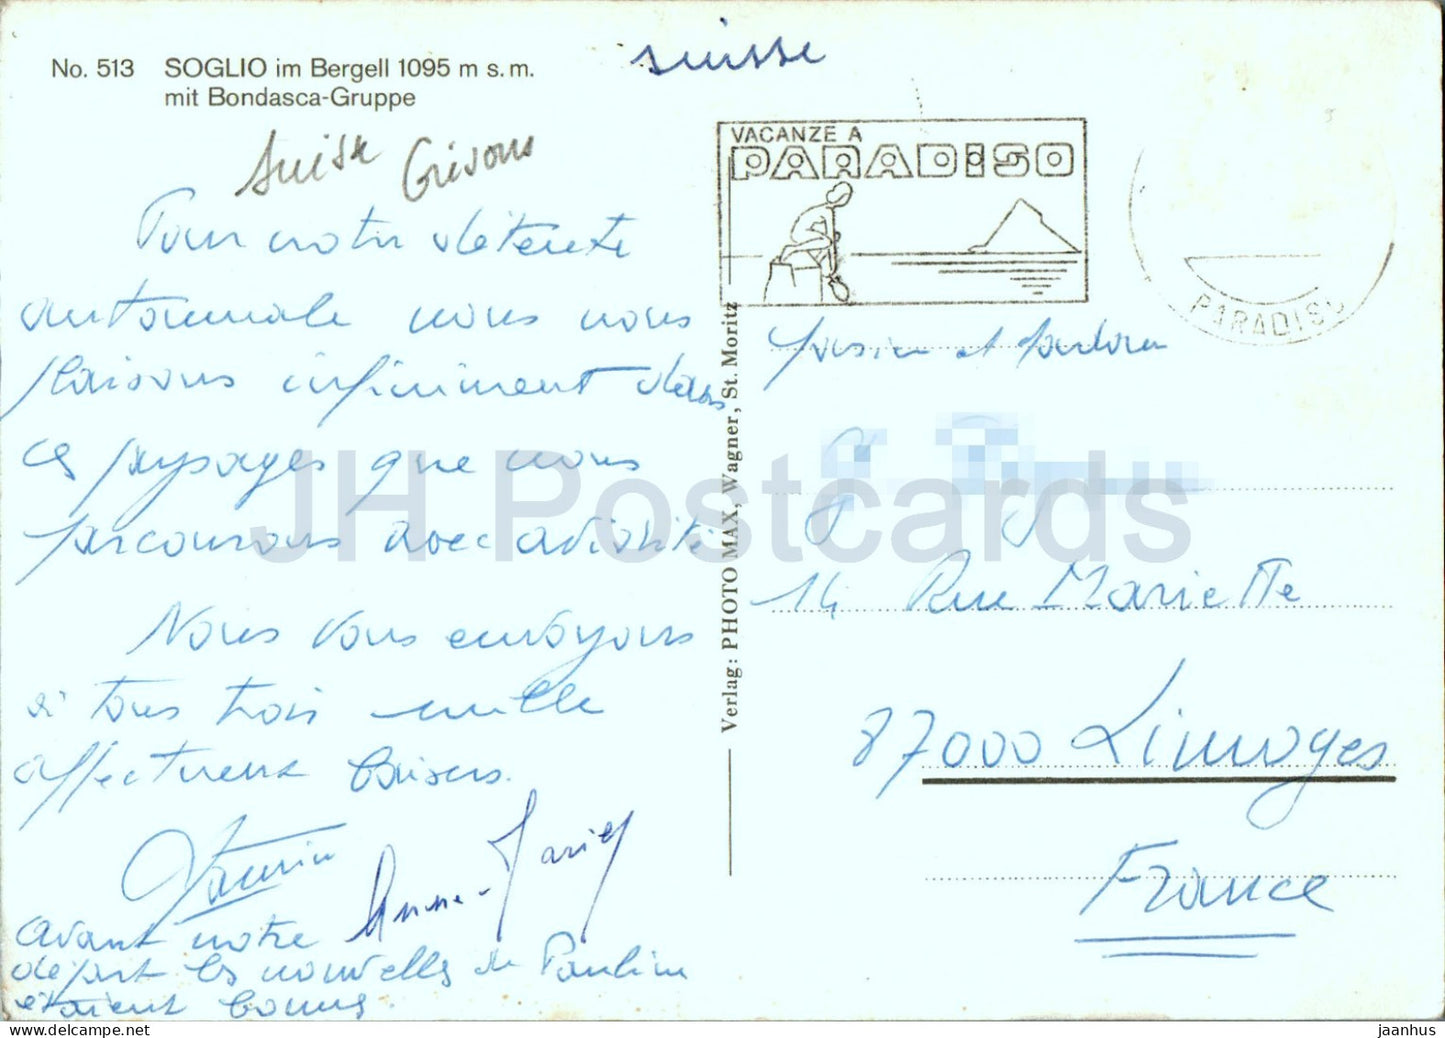 No. 513 SOGLIO im Bergell 1095 m s. m.
mit Bondasca-Gruppe
Suisse Grisons
Pour notre détente
automnale nous nous
plaisons infiniment dans
ces paysages que nous
parcourons avec avidité
Nous vous envoyons
à tous trois mille
affectueux baisers.
Anne-Marie
avant notre
départ les nouvelles de Pauline
étaient bonnes.
Verlag: PHOTO MAX, Wagner, St. Moritz
suisse
VACANZE A
PARADISO
PARADISO
et Madame
14 Rue Mariette
87000 Limoges
France
JH Postcards
jaanhus
hipstamp.com